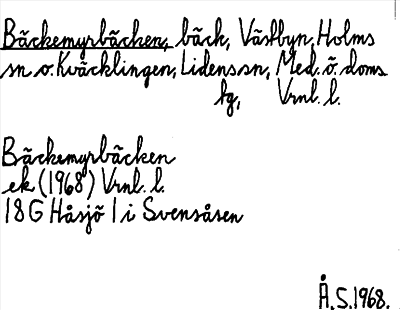 Bäckemyrbäcken, bäck, Västbyn, Holms
sn o. Kväcklingen, Lidens sn, Med. ö. doms
lg, Vrnl. l.
Bäckemyrbäcken
ek (1968) Vrnl. l.
18 G Håsjö 1 i Svensåsen
Å. S. 1968.